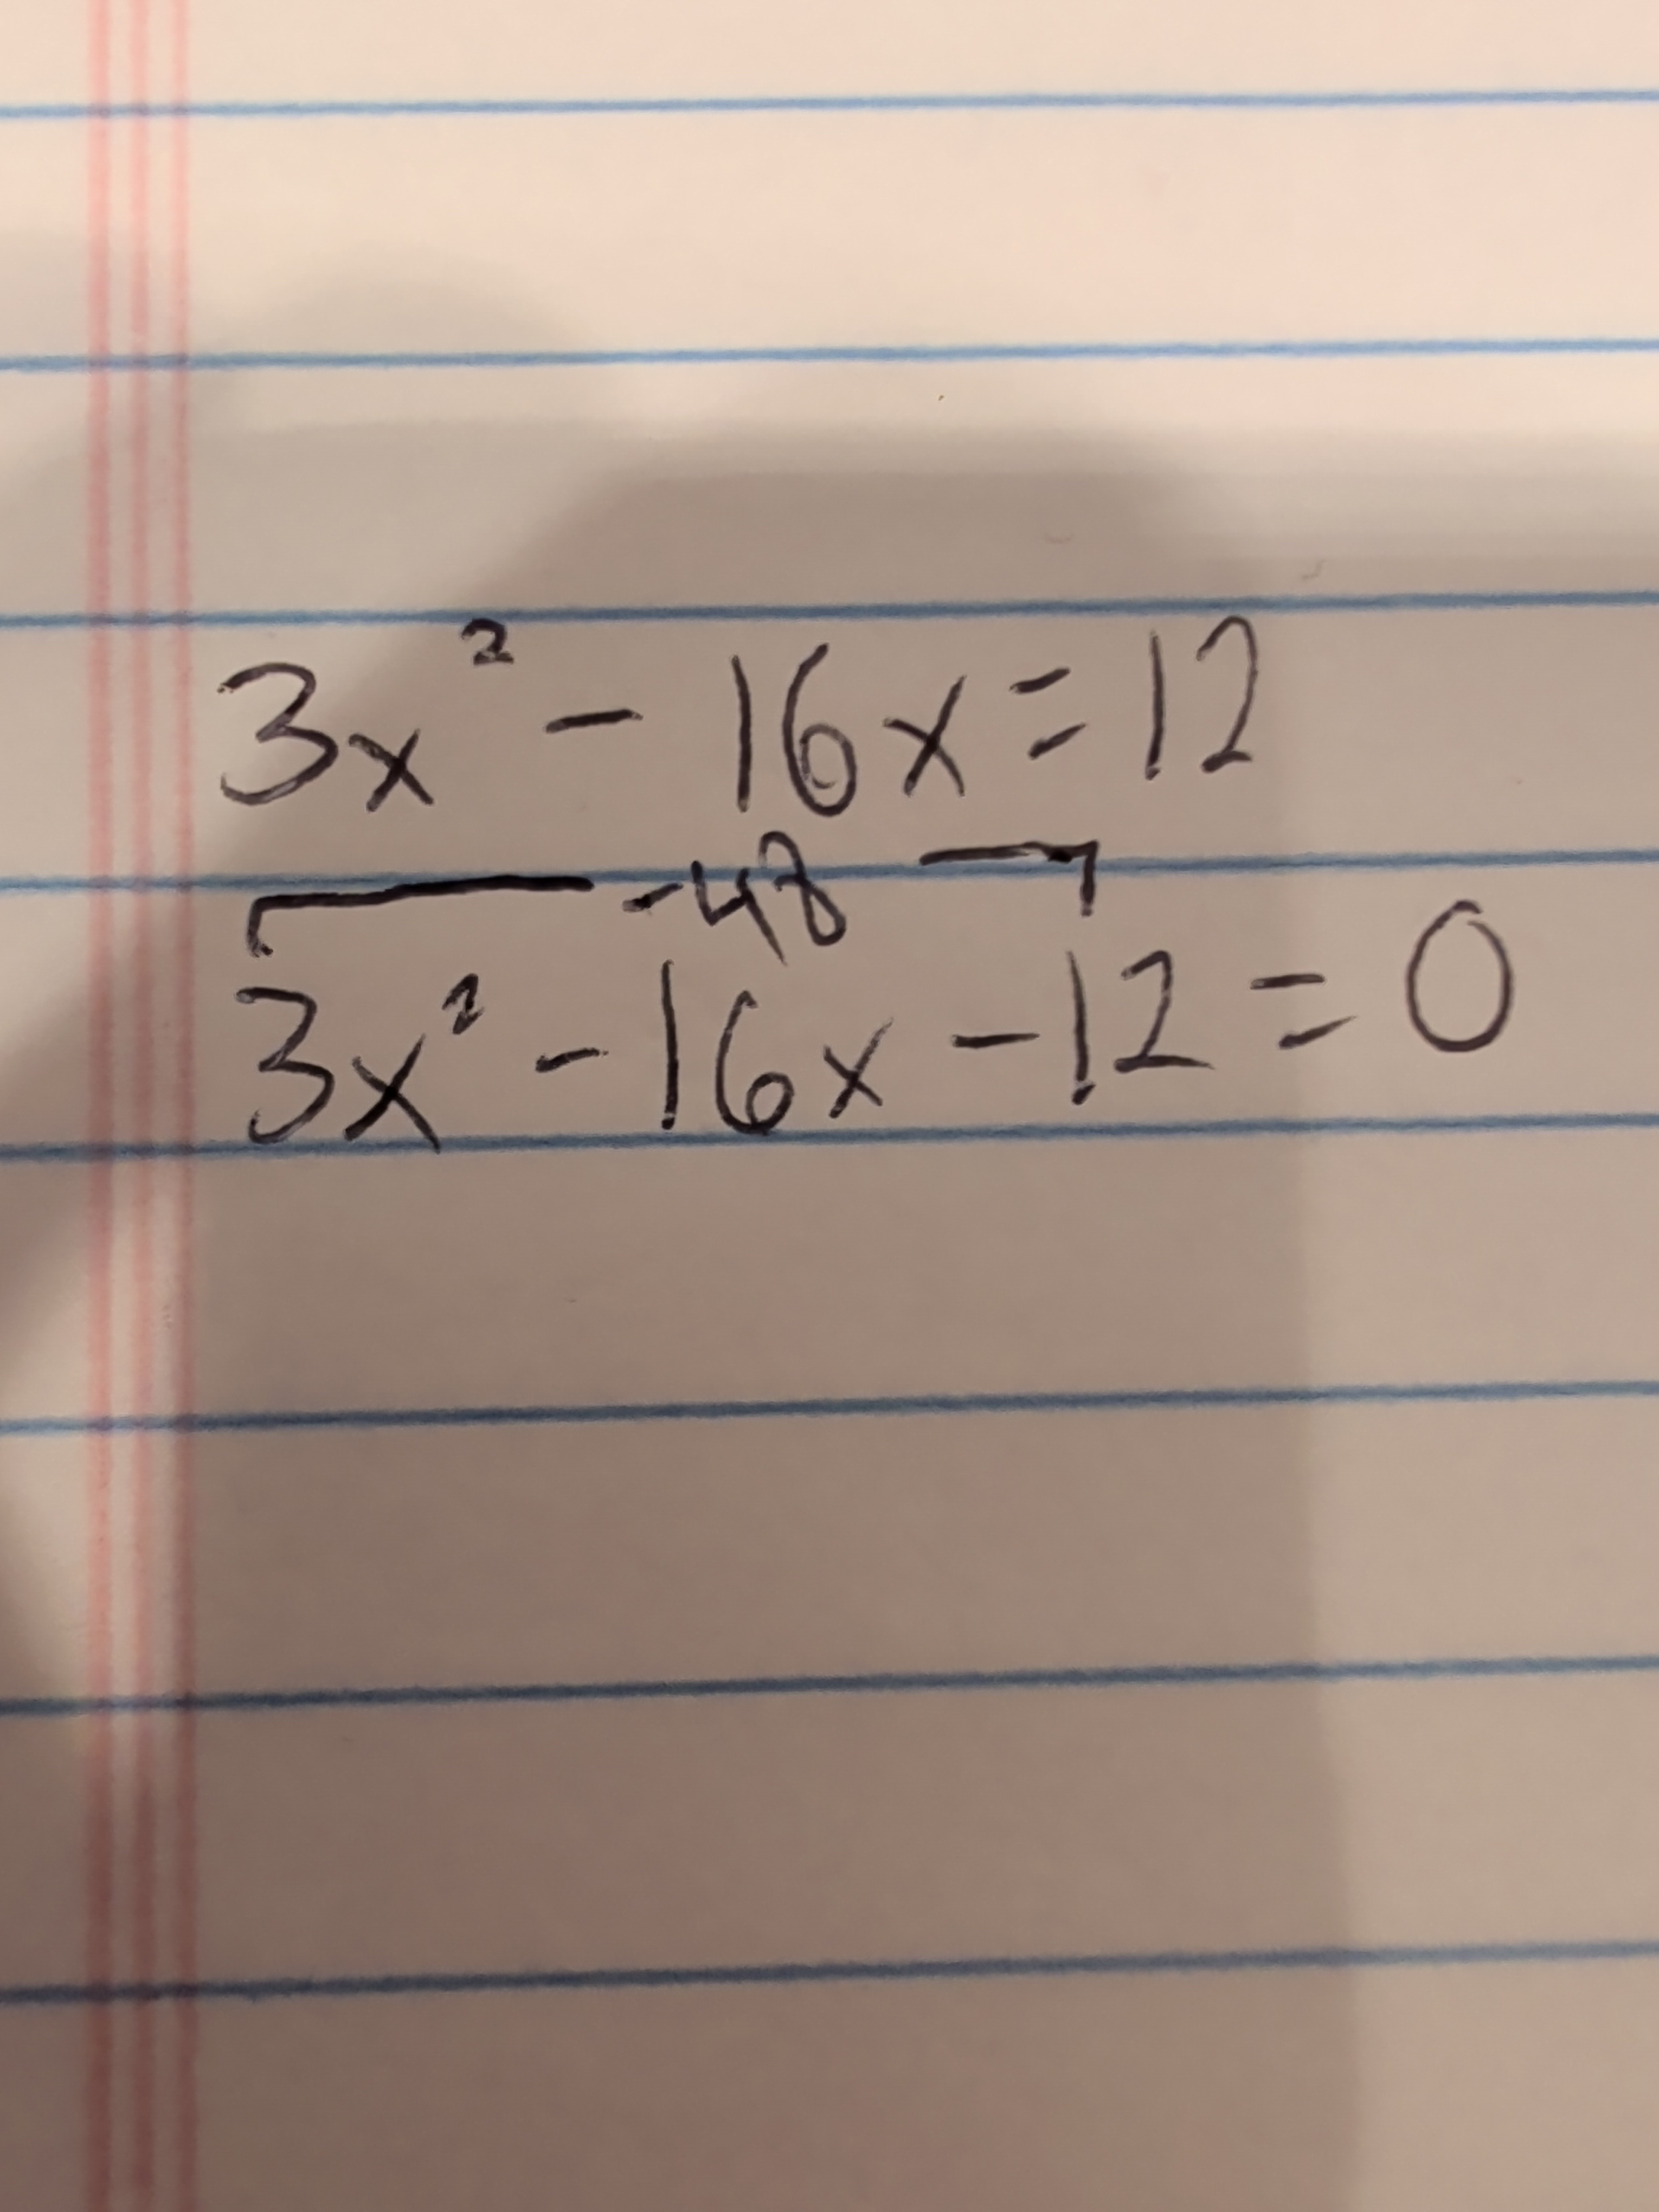 3x² - 16x = 12
-48
3x² - 16x - 12 = 0